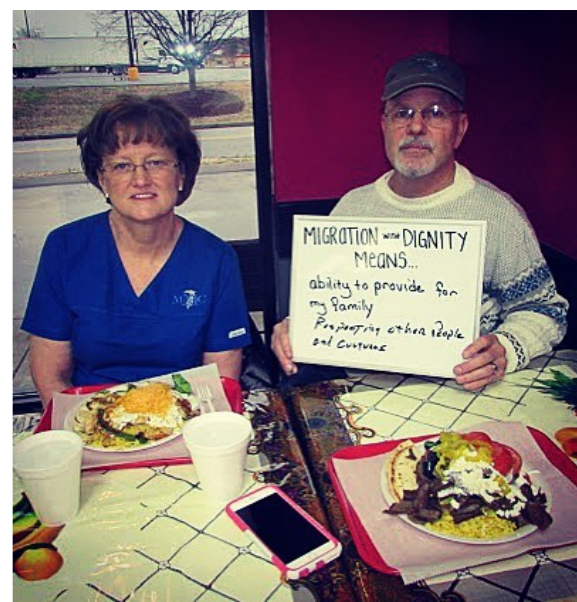 MIGRATION WITH DIGNITY
MEANS...
ability to provide for
my family
Respecting other People
and Cultures